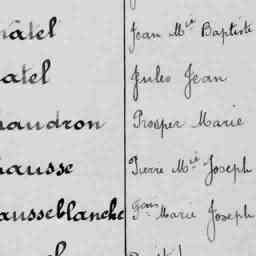 hâtel Jean M^ie Baptiste
atel Jules Jean
haudron Prosper Marie
hausse Pierre M^ie Joseph
ausseblanche F^çois Marie Joseph